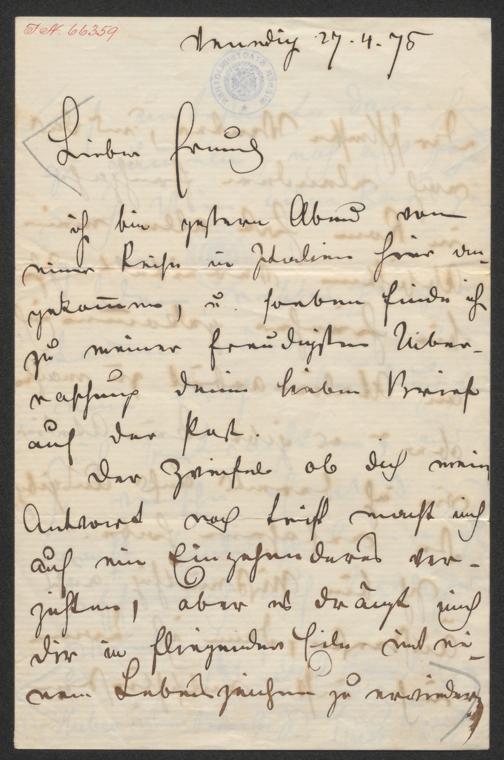 J.N. 66359
Venedig 27.4.75
Lieber Freund
ich bin gestern Abend von
einer Reise in Italien hier an-
gekommen, u. soeben finde ich
zu meiner freudigsten Ueber-
raschung deinen lieben Brief
auf der Post.
Der Zweifel ob dich mein
Antwort noch trifft macht mich
auf ein Eingehenderes ver-
zichten, aber es drängt mich
dir in fliegender Eile mit ei-
nem Lebenszeichen zu erwiedern